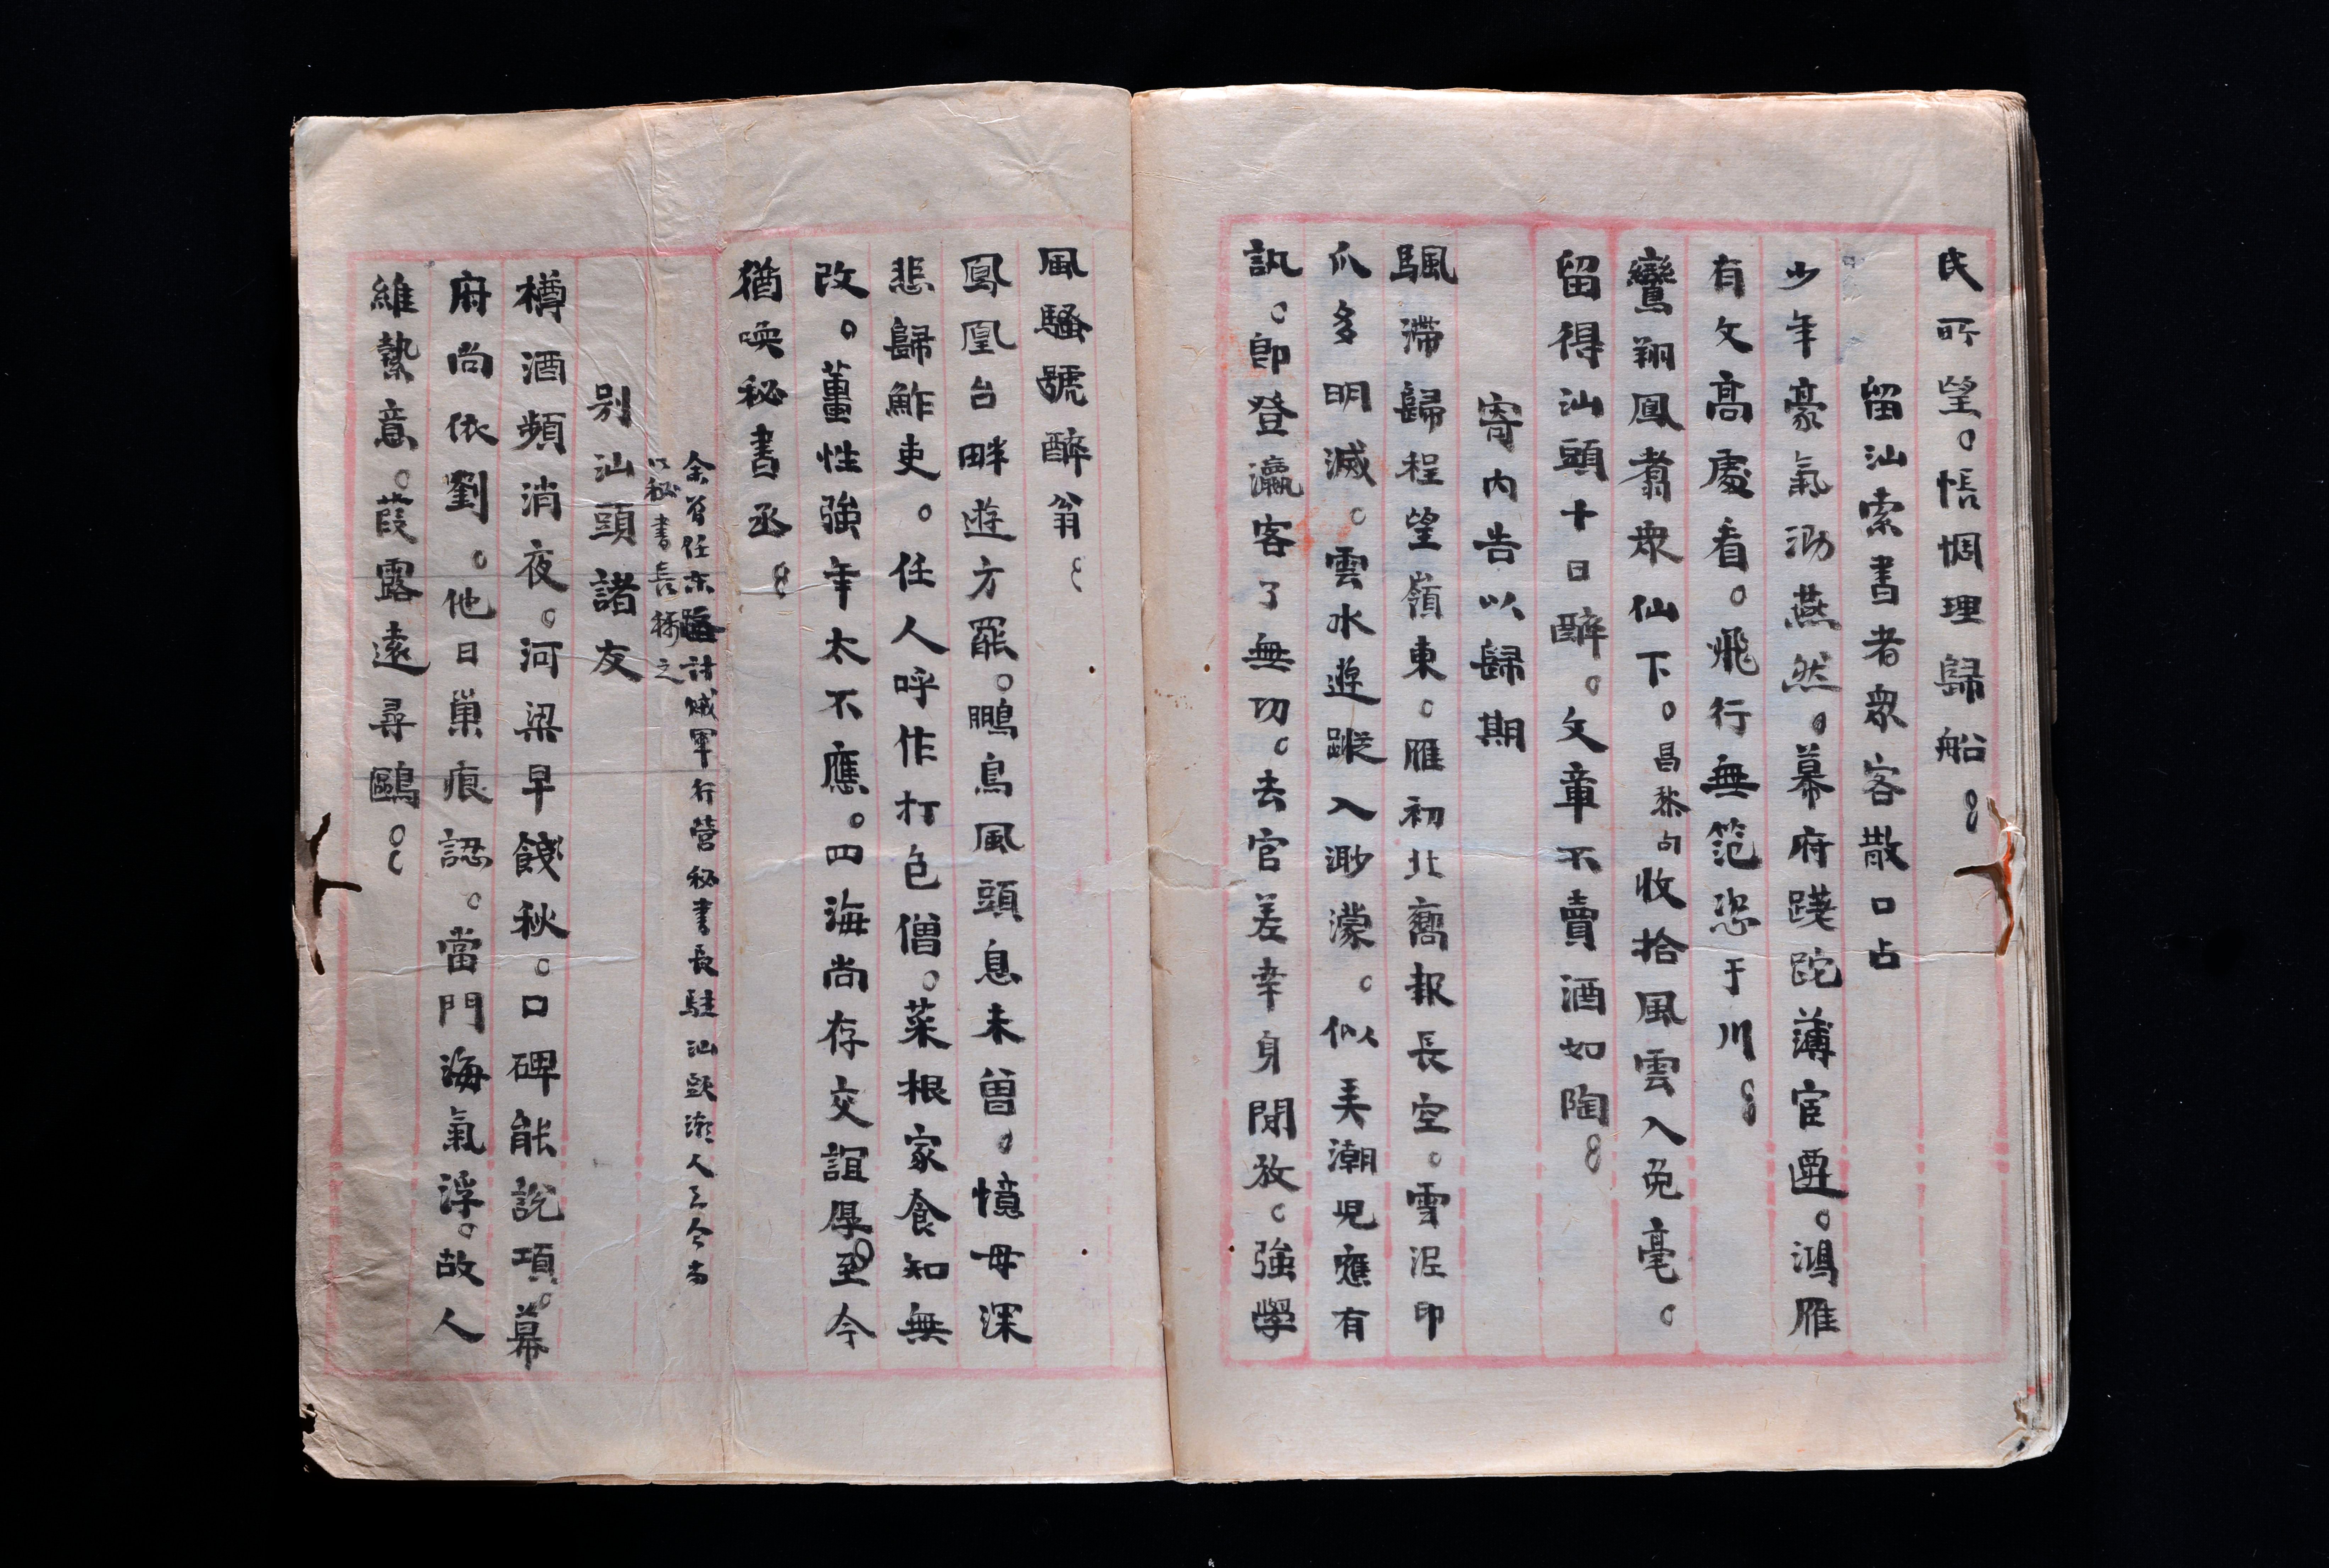 氏所望。悵惆理歸船。
留汕索書者衆客散口占
少年豪氣泐燕然。幕府蹉跎薄宦邅。鴻雁
有文高處看。飛行無範恐于川。
鸞翔鳳翥衆仙下。昌黎句收拾風雲入兔毫。
留得汕頭十日醉。文章不賣酒如陶。
寄內告以歸期
颿滯歸程望嶺東。雁初北嚮報長空。雪泥印
爪多明滅。雲水遊蹤入渺濛。似美潮児應有
訊。卽登瀛客了無功。去官差幸身閒放。強學
風騷號醉翁。
鳳凰台畔遊方罷。鵬鳥風頭息未曾。憶母深
悲歸鮓吏。任人呼作打包僧。菜根家食知無
改。薑性強年太不應。四海尚存交誼厚。至今
猶喚秘書丞。
余曾任東路討賊軍行營秘書長駐汕頭潮人至今尚
以秘書長稱之
別汕頭諸友
樽酒頻消夜。河梁早餞秋。口碑能說項。幕
府尚依劉。他日巢痕認。當門海氣浮。故人
維縶意。葭露遠尋鷗。